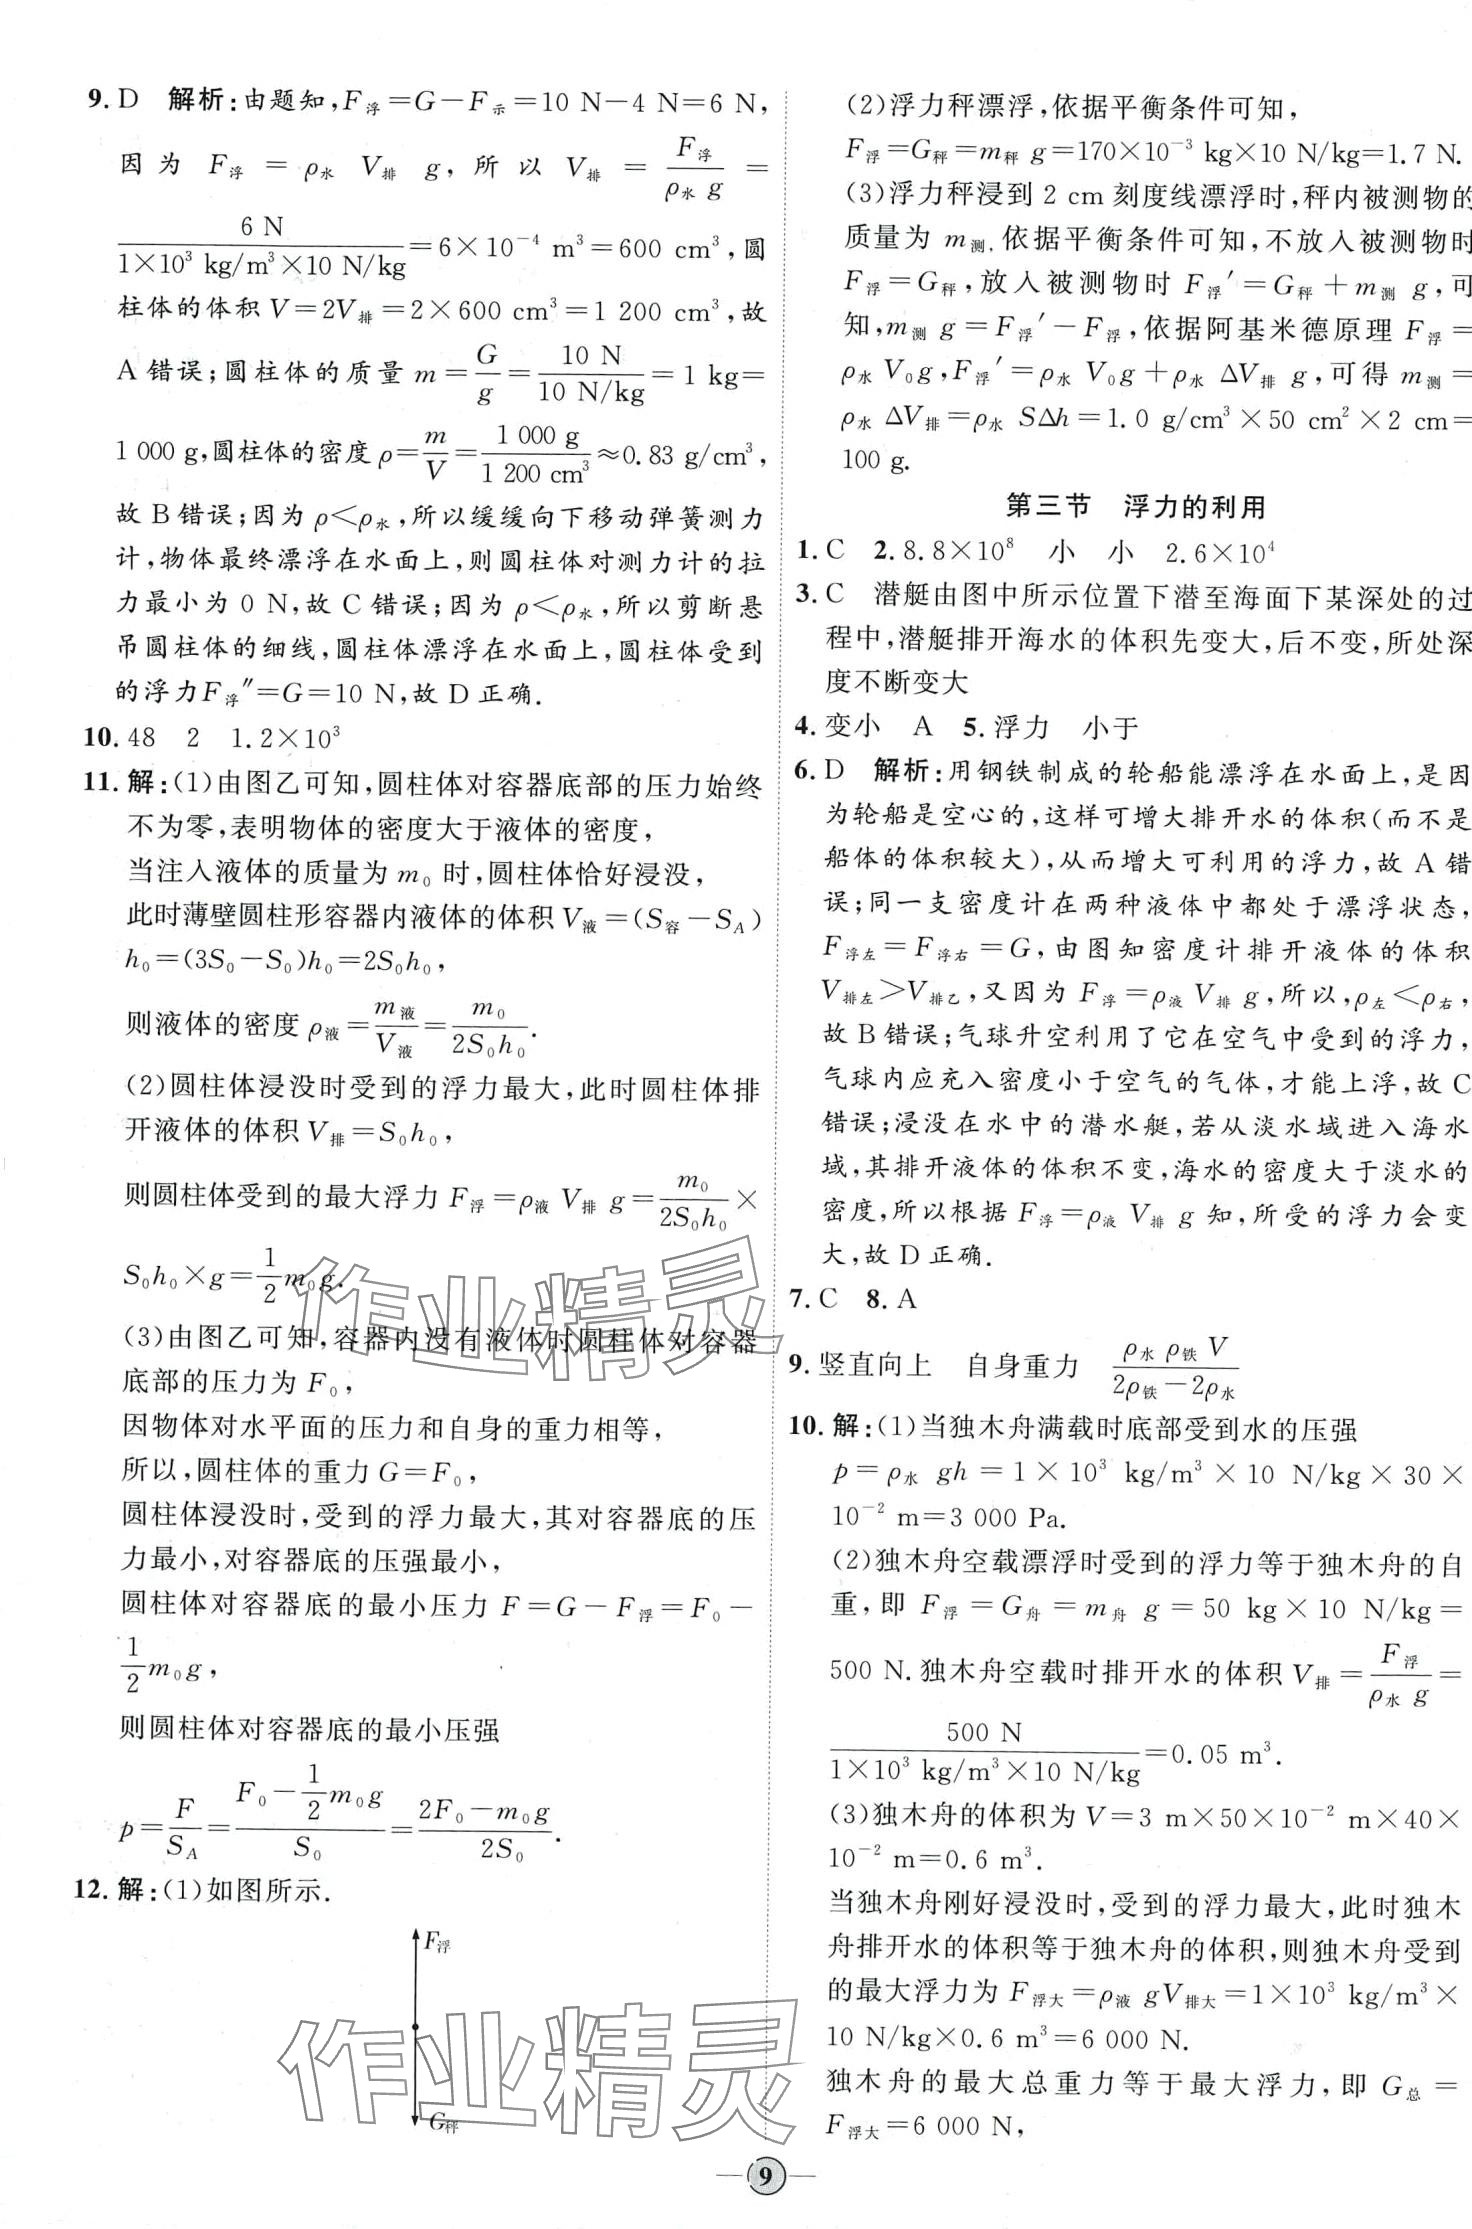 9. D 解析:由题知,F浮=G-F示=10 N-4 N=6 N,
因为 F浮 = ρ水 V排 g,所以 V排 = F浮/(ρ水 g) =
6 N/(1×10³ kg/m³×10 N/kg)=6×10⁻⁴ m³=600 cm³,圆
柱体的体积 V=2V排=2×600 cm³=1 200 cm³,故
A 错误;圆柱体的质量 m=G/g=10 N/(10 N/kg)=1 kg=
1 000 g,圆柱体的密度 ρ=m/V=1 000 g/1 200 cm³≈0.83 g/cm³,
故 B 错误;因为 ρ<ρ水,所以缓缓向下移动弹簧测力
计,物体最终漂浮在水面上,则圆柱体对测力计的拉
力最小为 0 N,故 C 错误;因为 ρ<ρ水,所以剪断悬
吊圆柱体的细线,圆柱体漂浮在水面上,圆柱体受到
的浮力 F浮″=G=10 N,故 D 正确.
10. 48 2 1.2×10³
11. 解:(1)由图乙可知,圆柱体对容器底部的压力始终
不为零,表明物体的密度大于液体的密度,
当注入液体的质量为 m₀ 时,圆柱体恰好浸没,
此时薄壁圆柱形容器内液体的体积 V液=(S容-S_A)
h₀=(3S₀-S₀)h₀=2S₀h₀,
则液体的密度 ρ液=m液/V液=m₀/(2S₀h₀).
(2)圆柱体浸没时受到的浮力最大,此时圆柱体排
开液体的体积 V排=S₀h₀,
则圆柱体受到的最大浮力 F浮=ρ液 V排 g=m₀/(2S₀h₀)×
S₀h₀×g=1/2 m₀g.
(3)由图乙可知,容器内没有液体时圆柱体对容器
底部的压力为 F₀,
因物体对水平面的压力和自身的重力相等,
所以,圆柱体的重力 G=F₀,
圆柱体浸没时,受到的浮力最大,其对容器底的压
力最小,对容器底的压强最小,
圆柱体对容器底的最小压力 F=G-F浮=F₀-
1/2 m₀g,
则圆柱体对容器底的最小压强
p=F/S_A=(F₀-1/2 m₀g)/S₀=(2F₀-m₀g)/(2S₀).
12. 解:(1)如图所示.
F浮
G秤
(2)浮力秤漂浮,依据平衡条件可知,
F浮=G秤=m秤 g=170×10⁻³ kg×10 N/kg=1.7 N.
(3)浮力秤浸到 2 cm 刻度线漂浮时,秤内被测物的
质量为 m测,依据平衡条件可知,不放入被测物时
F浮=G秤,放入被测物时 F浮′=G秤+m测 g,可
知,m测 g=F浮′-F浮,依据阿基米德原理 F浮=
ρ水 V₀g,F浮′=ρ水 V₀g+ρ水 ΔV排 g,可得 m测=
ρ水 ΔV排=ρ水 SΔh=1.0 g/cm³×50 cm²×2 cm=
100 g.
第三节 浮力的利用
1. C 2. 8.8×10⁸ 小 小 2.6×10⁴
3. C 潜艇由图中所示位置下潜至海面下某深处的过
程中,潜艇排开海水的体积先变大,后不变,所处深
度不断变大
4. 变小 A 5. 浮力 小于
6. D 解析:用钢铁制成的轮船能漂浮在水面上,是因
为轮船是空心的,这样可增大排开水的体积(而不是
船体的体积较大),从而增大可利用的浮力,故 A 错
误;同一支密度计在两种液体中都处于漂浮状态,
F浮左=F浮右=G,由图知密度计排开液体的体积
V排左>V排乙,又因为 F浮=ρ液 V排 g,所以,ρ左<ρ右,
故 B 错误;气球升空利用了它在空气中受到的浮力,
气球内应充入密度小于空气的气体,才能上浮,故 C
错误;浸没在水中的潜水艇,若从淡水域进入海水
域,其排开液体的体积不变,海水的密度大于淡水的
密度,所以根据 F浮=ρ液 V排 g 知,所受的浮力会变
大,故 D 正确.
7. C 8. A
9. 竖直向上 自身重力 ρ水 ρ铁 V/(2ρ铁-2ρ水)
10. 解:(1)当独木舟满载时底部受到水的压强
p=ρ水 gh=1×10³ kg/m³×10 N/kg×30×
10⁻² m=3 000 Pa.
(2)独木舟空载漂浮时受到的浮力等于独木舟的自
重,即 F浮=G舟=m舟 g=50 kg×10 N/kg=
500 N.独木舟空载时排开水的体积 V排=F浮/(ρ水 g)=
500 N/(1×10³ kg/m³×10 N/kg)=0.05 m³.
(3)独木舟的体积为 V=3 m×50×10⁻² m×40×
10⁻² m=0.6 m³.
当独木舟刚好浸没时,受到的浮力最大,此时独木
舟排开水的体积等于独木舟的体积,则独木舟受到
的最大浮力为 F浮大=ρ液 gV排大=1×10³ kg/m³×
10 N/kg×0.6 m³=6 000 N.
独木舟的最大总重力等于最大浮力,即 G总=
F浮大=6 000 N,
作业精灵
作业精灵
9